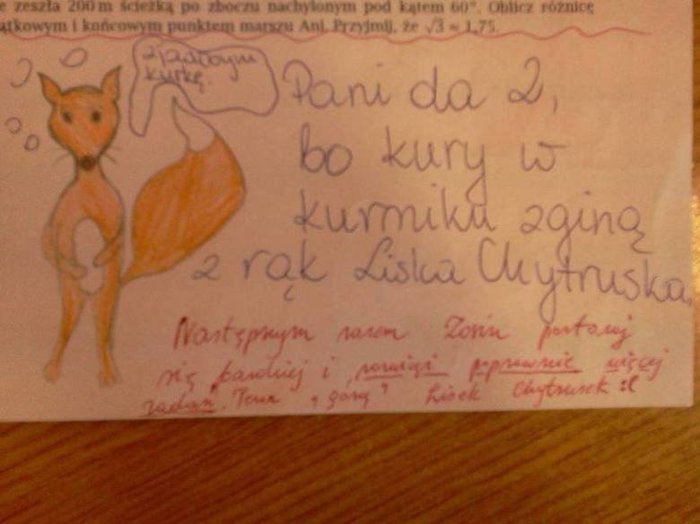 e zeszła 200 m ścieżką po zboczu nachylonym pod kątem 60°. Oblicz różnicę
ątkowym i końcowym punktem marszu Ani. Przyjmij, że √3 ≈ 1,75.
kurkę.
Pani da 2,
bo kury w
kurniku zginą
z rąk Liska Chytruska.
Następnym razem postaraj
się bardziej i rozwiąż poprawnie więcej
zadań. Lisek Chytrusek :c